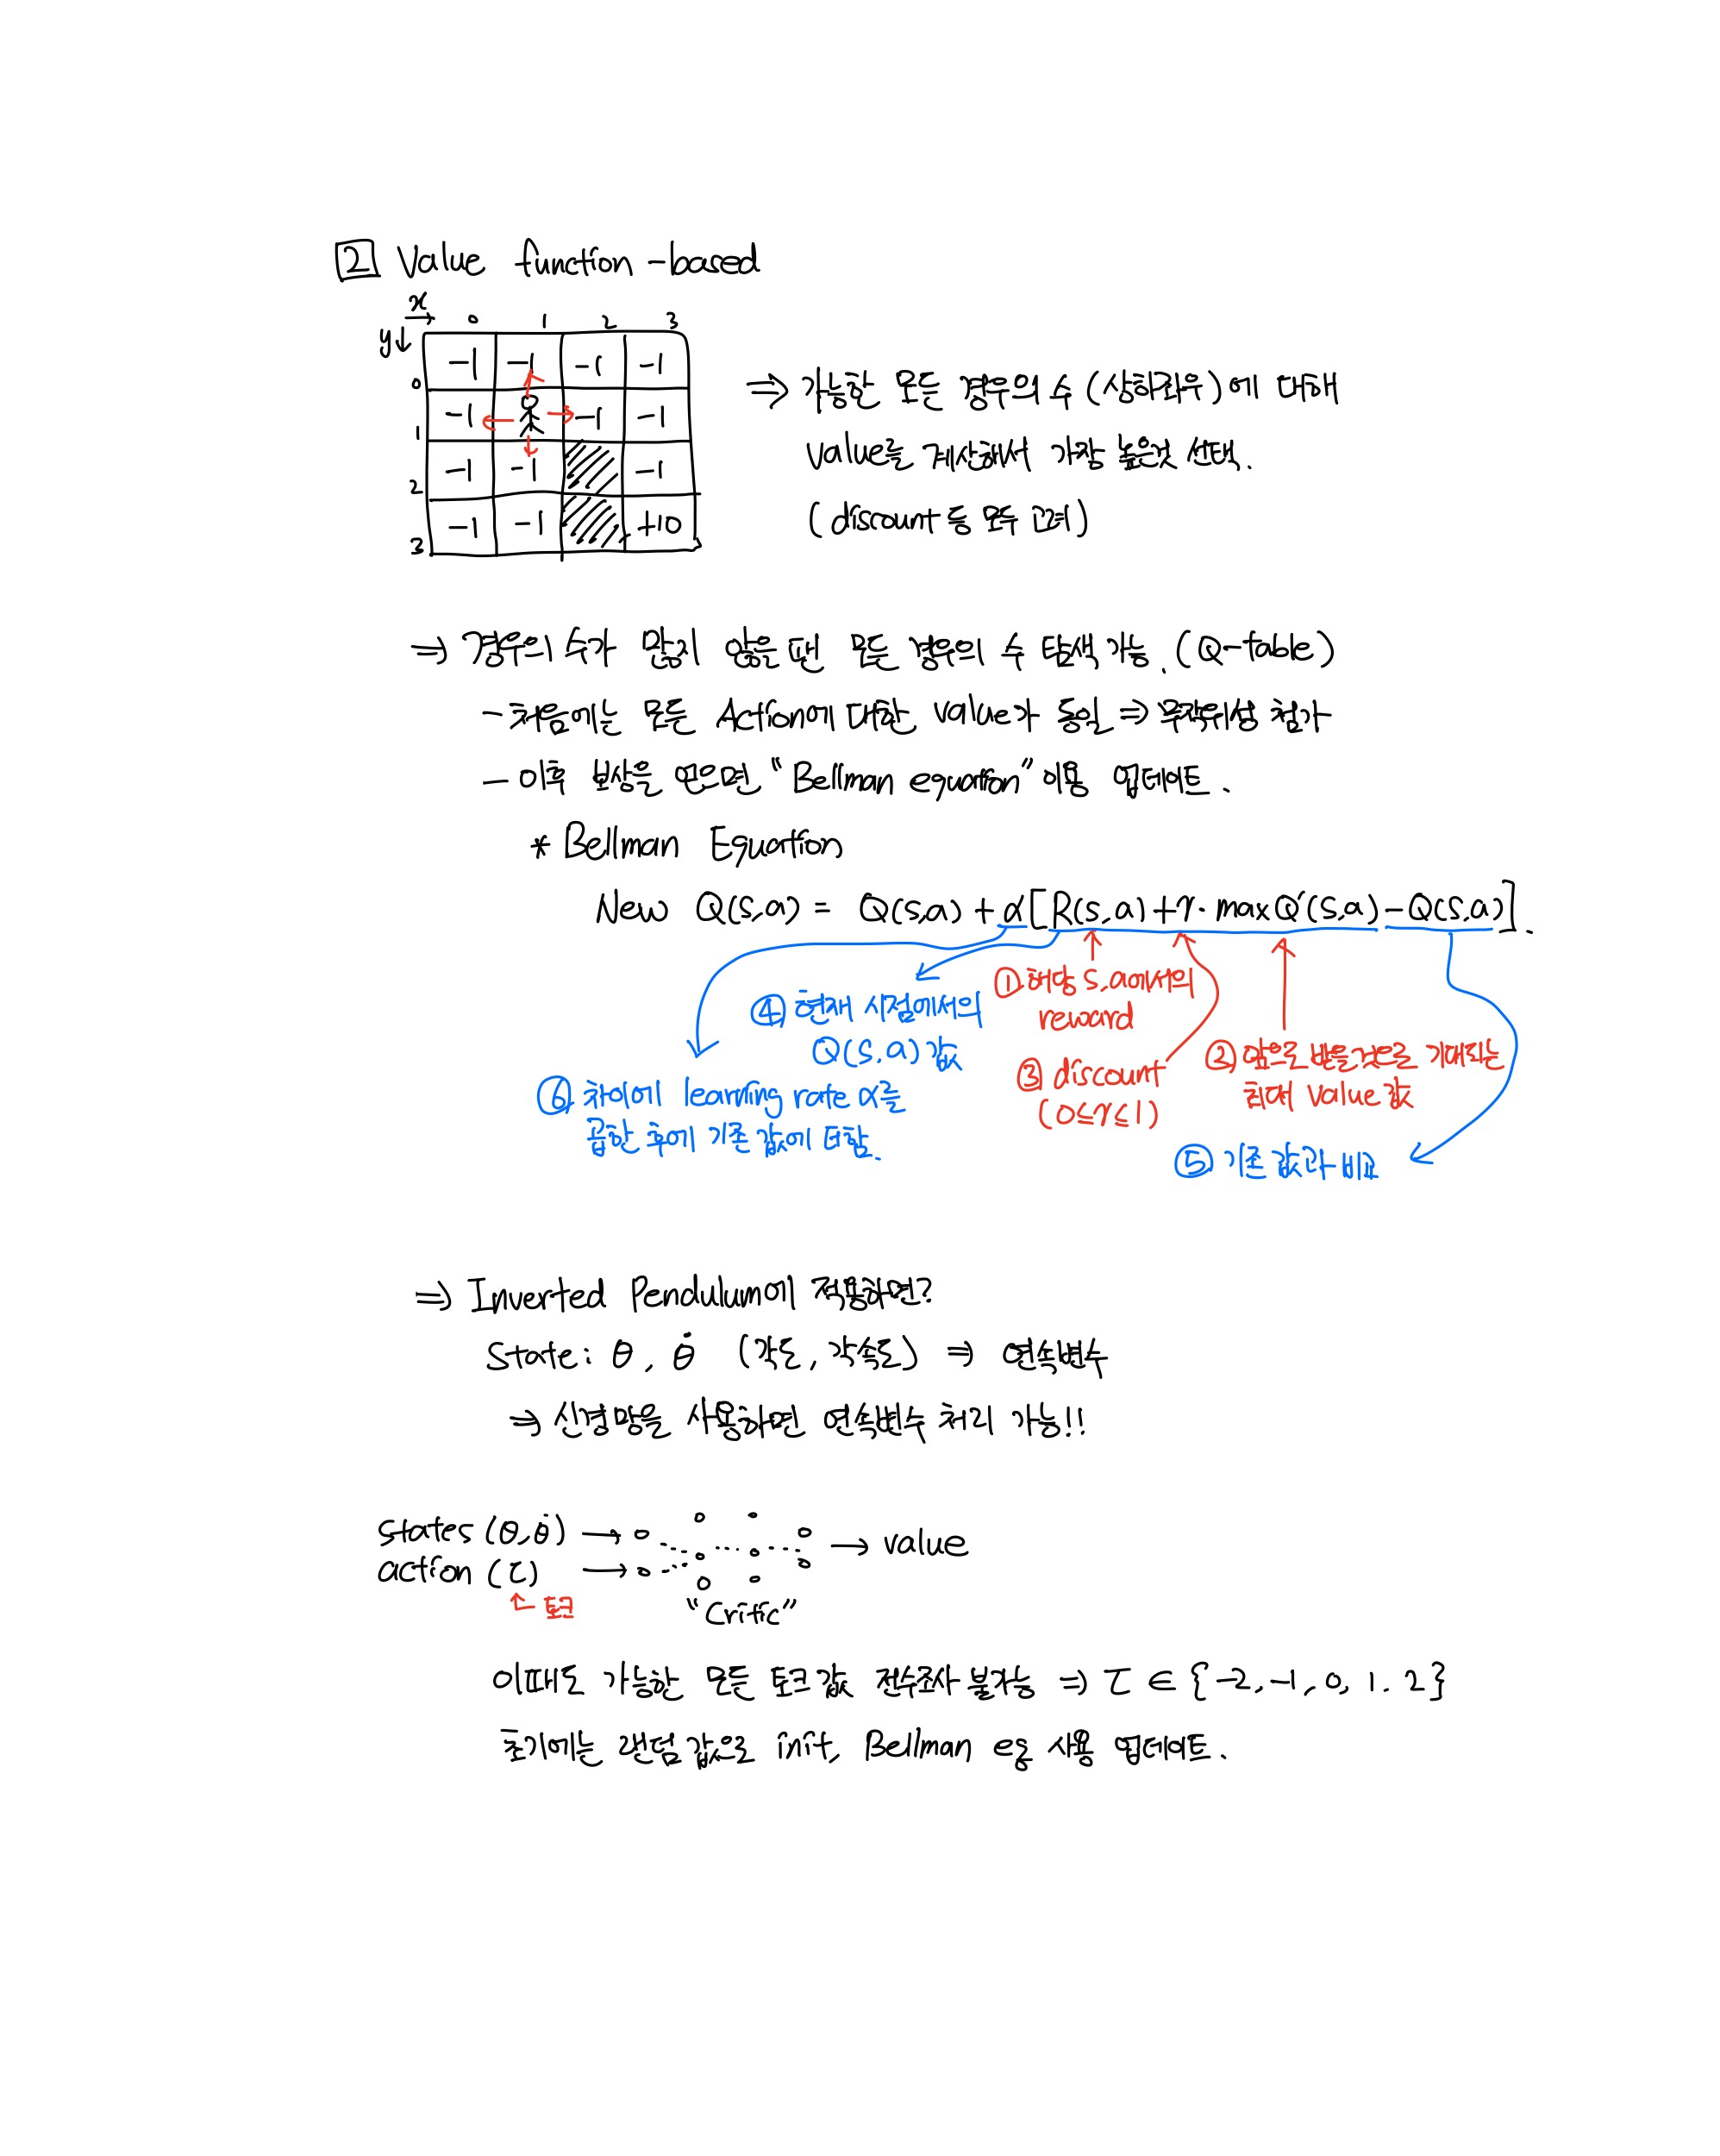 2 Value function-based
x
y 0 1 2 3
0 -1 -1 -1 -1
1 -1 -1 -1
2 -1 -1 -1
3 -1 -1 +10
⇒ 가능한 모든 경우의 수 (상하좌우)에 대해
value를 계산해서 가장 높은것 선택.
(discount 등 모두 고려)
⇒ 경우의 수가 많지 않을 땐 모든 경우의 수 탐색 가능. (Q-table)
- 처음에는 모든 Action에 대한 value가 동일 ⇒ 무작위성 첨가
- 이후 보상을 얻으면 "Bellman equation" 이용 업데이트.
* Bellman Equation
New Q(s,a) = Q(s,a) + α[R(s,a)+γ·maxQ'(s,a) - Q(s,a)].
① 해당 s,a에서의
reward
② 앞으로 받을것으로 기대되는
최대 value 값
③ discount
(0≤γ≤1)
④ 현재 시점에서의
Q(s,a) 값
⑤ 기존 값과 비교
⑥ 차이에 learning rate α를
곱한 후에 기존 값에 더함.
⇒ Inverted Pendulum에 적용하면?
State: θ, θ̇ (각도, 각속도) ⇒ 연속변수
⇒ 신경망을 사용하면 연속변수 처리 가능!!
states (θ,θ̇) → → value
action (τ) →
토크
"Critic"
이때도 가능한 모든 토크 값 전수조사 불가능 ⇒ τ ∈ {-2, -1, 0, 1. 2}
초기에는 랜덤 값으로 init, Bellman eq 사용 업데이트.